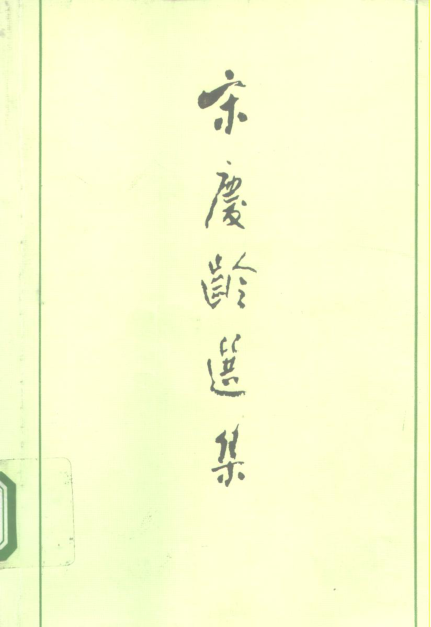 宋慶齡選集